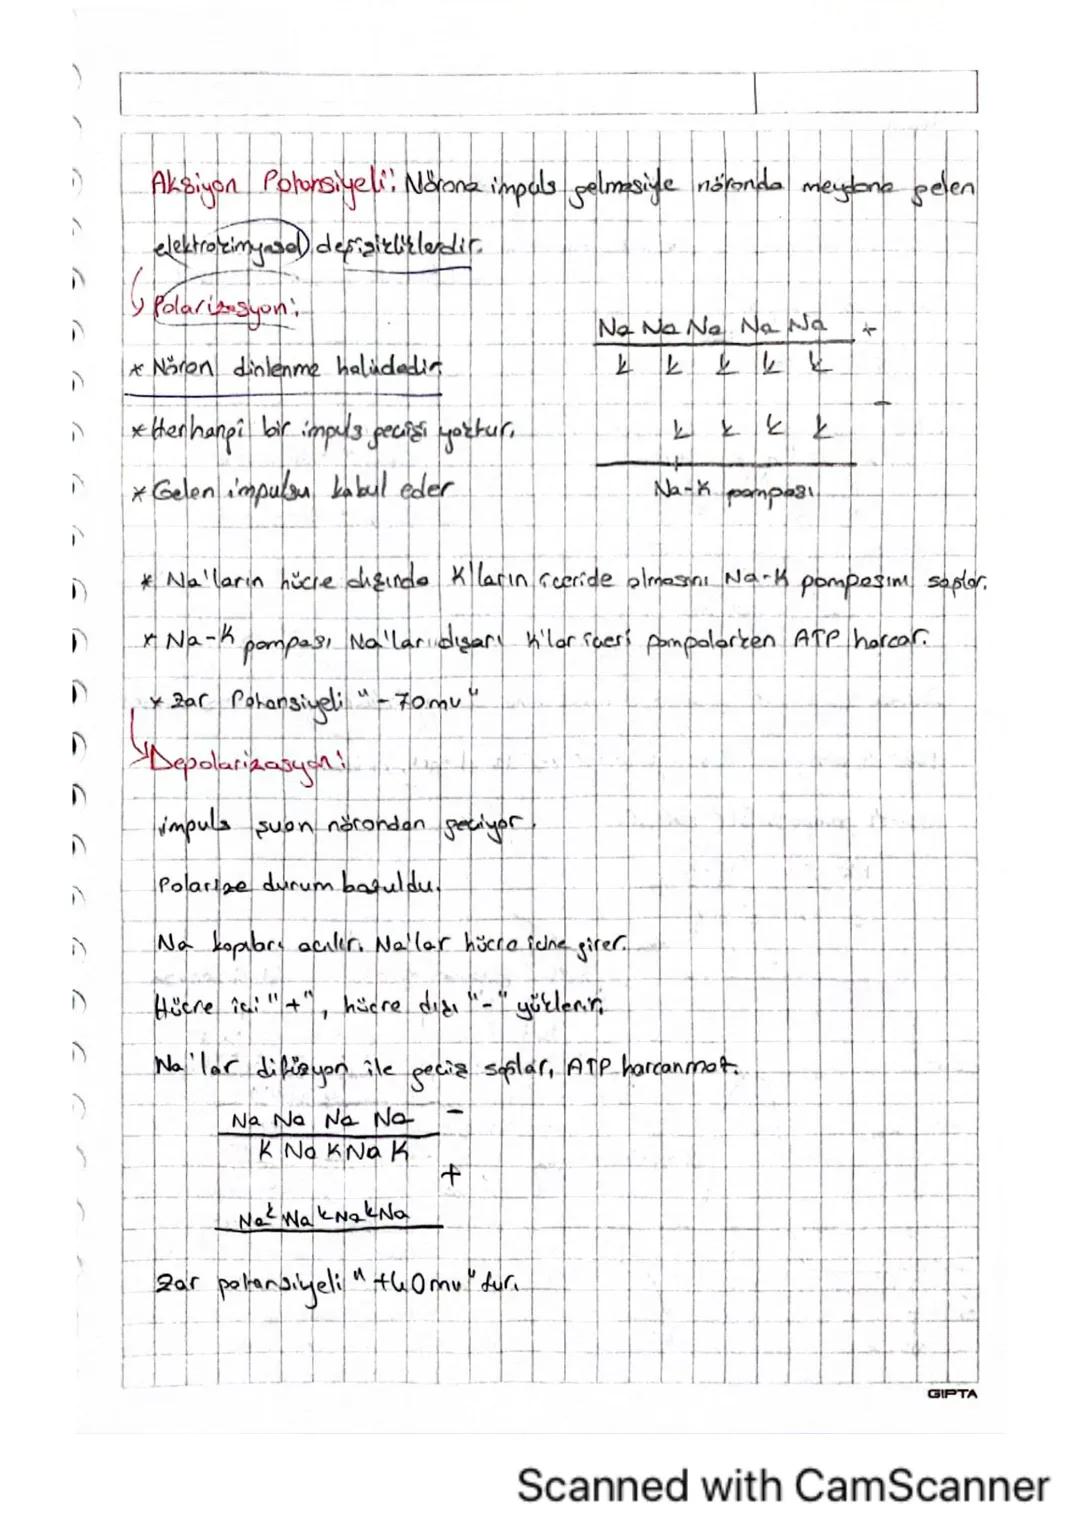 Aksiyon Potansiyeli: Nörona impuls gelmesiyle nöronda meydana gelen
elektrokimyasal değişikliklerdir.
Polarizasyon:
* Nöron dinlenme halindedir.
* Herhangi bir impuls geçişi yoktur.
* Gelen impulsu kabul eder
Na Na Na Na Na +
K K K K K
-
K K K K
Na-K pompası
* Na'ların hücre dışında K'ların içeride olmasını Na-K pompasını sağlar.
* Na-K pompası Na'ları dışarı K'lar içeri pompalarken ATP harcar.
* Zar Potansiyeli "-70mv"
Depolarizasyon:
impuls şuan nörondan geçiyor.
Polarize durum bozuldu.
Na kapıları açılır. Na'lar hücre içine girer.
Hücre içi "+", hücre dışı "-" yüklenir.
Na'lar difüzyon ile geçiş sağlar, ATP harcanmaz.
Na Na Na Na -
K Na K Na K
+
Na K Na K Na K Na
Zar potansiyeli "+40mv" dur.
GIPTA
Scanned with CamScanner